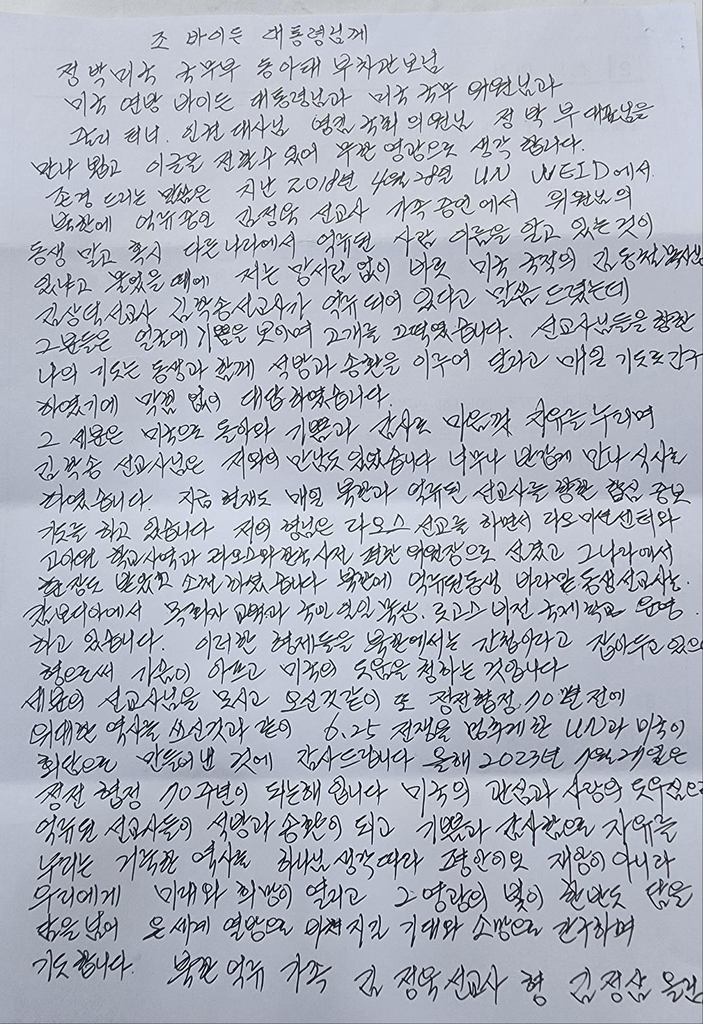 조 바이든 대통령님께
정 박 미국 국무부 동아태 부차관보님
미국 연방 바이든 대통령님과 미국 국무 위원님과
줄리 터너 인권 대사님 영김 국회 의원님 정 박 부 대표님을
만나 뵙고 이글을 전할수 있어 무한 영광으로 생각 합니다.
존경 드리는 말씀은 지난 2018년 4월28일 UN WEID에서
북한에 억류중인 김정욱 선교사 가족 증언에서 위원님의
동생 말고 혹시 다른나라에서 억류된 사람 이름을 알고 있는것이
있냐고 물었을때에 저는 망서림 없이 바로 미국 국적의 김동철목사님
김상덕선교사 김학송선교사가 억류 되어 있다고 말씀 드렸는데
그분들은 얼굴에 기쁨을 못이며 고개를 끄떡였습니다. 선교사님들을 향한
나의 기도는 동생과 함께 석방과 송환을 이루어 달라고 매일 기도로간구
하였기에 막힘 없이 대답 하였습니다.
그 세분은 미국으로 돌아와 기쁨과 감사로 마음껏 자유를 누리며
김학송 선교사님은 저와의 만남도 있었습니다 너무나 반갑게 만나 식사도
하였습니다. 지금 현재도 매일 북한과 억류된 선교사를 향한 합심 중보
기도를 하고 있습니다 저의 형님은 라오스 선교를 하면서 라오미션센터와
고아원 학교사역과 라오스와한국사전 편찬 위원장으로 섬겼고 그나라에서
훈장도 받았고 소천 하셨습니다 북한에 억류된동생 바로밑 동생선교사는
캄보디아에서 목회자 교백과 국민일일 묵상, 로고스 비전 국제 학교 운영
하고 있습니다. 이러한 형제들을 북한에서는 간첩이라고 잡아두고 있으니
형으로써 가슴이 아프고 미국의 도움을 청하는 것입니다
세분의 선교사님을 모시고 오신것같이 또 정전협정 70년전에
위대한 역사를 쓰신것과 같이 6.25 전쟁을 멈추게 한 UN과 미국이
희망으로 만들어낸 것에 감사드립니다 올해 2023년 7월27일은
정전 협정 70주년이 되는해 입니다 미국의 관심과 사랑의 도우심으로
억류된 선교사들이 석방과 송환이 되고 기쁨과 감사함으로 자유를
누리는 거룩한 역사로 하나님 생각따라 평안이요 재앙이 아니라
우리에게 미래와 희망이 열리고 그 영광의 빛이 한반도 담을
담을 넘어 온 세계 열방으로 퍼져지길 기대와 소망으로 간구하며
기도합니다. 북한 억류 가족 김 정욱선교사 형 김정삼 올림